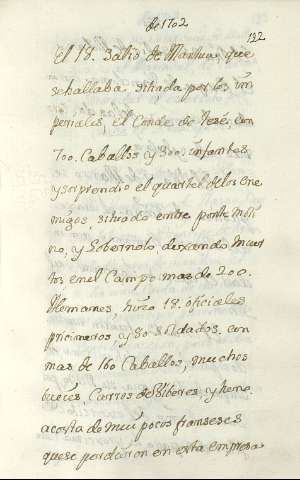 de 1702
132
El 18. salio de Mantua, que
se hallaba sitiada por los im
periales, el Conde de Tesé, con
700. Caballos y 500. infantes
y sorprendio el quartel de los ene
migos, sitiado entre ponte moli
no, y Gobernolo, dexando muer
tos en el Campo mas de 200.
Alemanes, hizo 18. oficiales
pricioneros, y 80 soldados. con
mas de 160 Caballos, muchos
bueies, Carros de Biberes, y heno
acosta de mui pocos franseses
que se perdieron en esta empresa